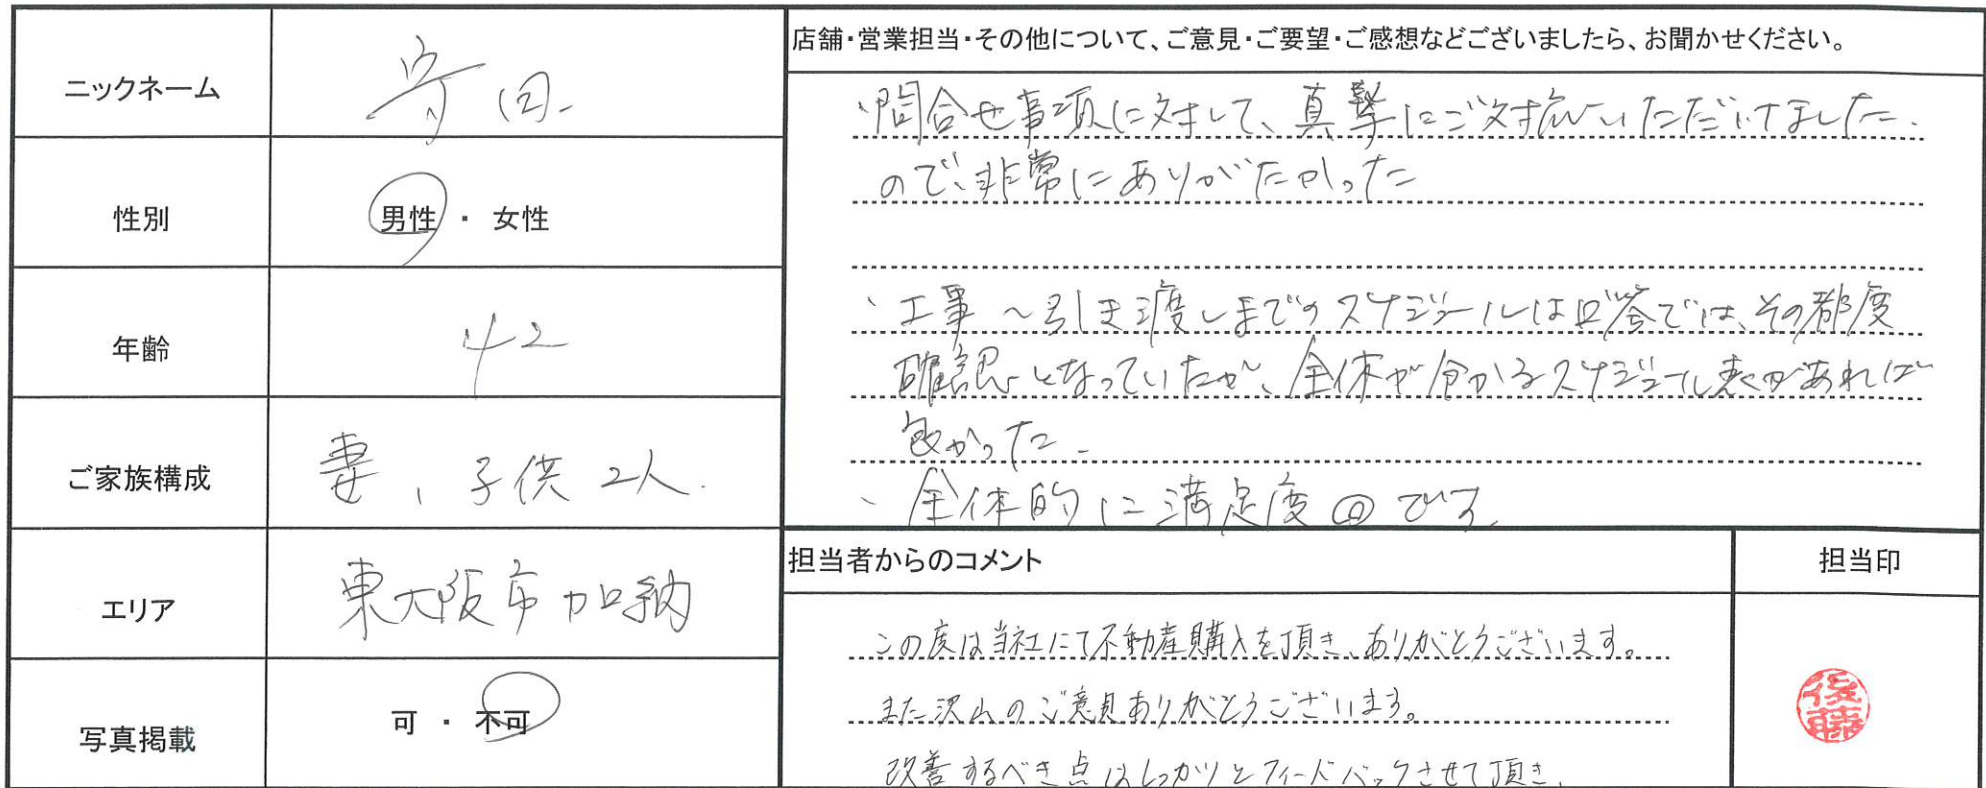 ニックネーム
守田
性別
男性 ・ 女性
年齢
42
ご家族構成
妻、子供 2人.
エリア
東大阪市加納
写真掲載
可 ・ 不可
店舗・営業担当・その他について、ご意見・ご要望・ご感想などございましたら、お聞かせください。
・問合せ事項に対して、真摯にご対応いただけました
ので、非常にありがたかった
・工事～引き渡しまでのスケジュールは口答では、その都度
確認となっていたが、全体が分かるスケジュール表があれば
良かった
・全体的に満足度◎です
担当者からのコメント
この度は当社にて不動産購入を頂き、ありがとうございます。
また沢山のご意見ありがとうございます。
改善するべき点はしっかりとフィードバックさせて頂き、
担当印
後藤